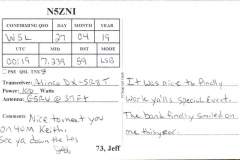 N5ZNI
CONFIRMING QSO DAY MONTH YEAR
W5L 27 04 19
UTC MHz RST MODE
00:19 7.239 59 LSB
PSE QSL TNX
Transceiver: Alinco DX-SR8T
Power: 100 Watts
Antenna: G5RV @ 37FT
Comments:
Nice to meet you
on 40M Keith.
See ya down the log
73, Jeff
It was nice to finally
work yalls special event.
The band finally smiled on
me this year.